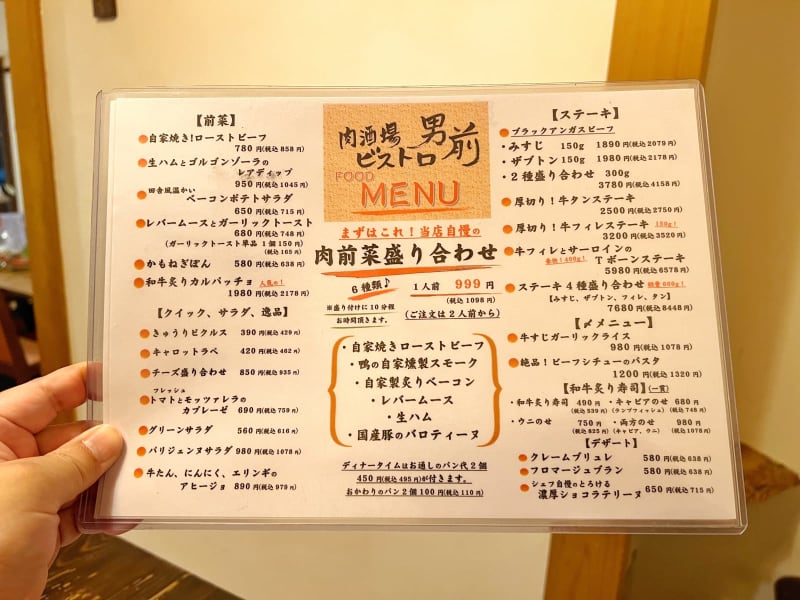 【前菜】
自家焼き!ローストビーフ
780円(税込858円)
生ハムとゴルゴンゾーラの
レアディップ
950円(税込1045円)
田舎風温かい
ベーコンポテトサラダ
650円(税込715円)
レバームースとガーリックトースト
680円(税込748円)
(ガーリックトースト単品 1個150円)
(税込165円)
かもねぎぽん 580円(税込638円)
和牛炙りカルパッチョ 人気の!
1980円(税込2178円)
【クイック、サラダ、逸品】
きゅうりピクルス 390円(税込429円)
キャロットラペ 420円(税込462円)
チーズ盛り合わせ 850円(税込935円)
フレッシュ
トマトとモッツァレラの
カプレーゼ 690円(税込759円)
グリーンサラダ 560円(税込616円)
パリジェンヌサラダ 980円(税込1078円)
牛たん、にんにく、エリンギの
アヒージョ 890円(税込979円)
肉酒場
ビストロ 男前
FOOD
MENU
まずはこれ!当店自慢の
肉前菜盛り合わせ
6種類♪ 1人前 999円
(税込1098円)
※盛り付けに10分程
お時間頂きます。
(ご注文は2人前から)
・自家焼きローストビーフ
・鴨の自家燻製スモーク
・自家製炙りベーコン
・レバームース
・生ハム
・国産豚のバロティーヌ
ディナータイムはお通しのパン代2個
450円(税込495円)が付きます。
おかわりのパン2個100円(税込110円)
【ステーキ】
ブラックアンガスビーフ
・みすじ 150g 1890円(税込2079円)
・ザブトン 150g 1980円(税込2178円)
・2種盛り合わせ 300g
3780円(税込4158円)
厚切り!牛タンステーキ
2500円(税込2750円)
厚切り!牛フィレステーキ 150g!
3200円(税込3520円)
牛フィレとサーロインの
豪快!400g! Tボーンステーキ
5980円(税込6578円)
ステーキ4種盛り合わせ 総量600g!
[みすじ、ザブトン、フィレ、タン]
7680円(税込8448円)
【〆メニュー】
牛すじガーリックライス
980円(税込1078円)
絶品!ビーフシチューのパスタ
1200円(税込1320円)
【和牛炙り寿司】(一貫)
・和牛炙り寿司 490円 ・キャビアのせ 680円
(税込539円) (ランプフィッシュ) (税込748円)
・ウニのせ 750円 ・両方のせ 980円
(税込825円) (キャビア、ウニ) (税込1078円)
【デザート】
クレームブリュレ 580円(税込638円)
フロマージュブラン 580円(税込638円)
シェフ自慢のとろける
濃厚ショコラテリーヌ 650円(税込715円)